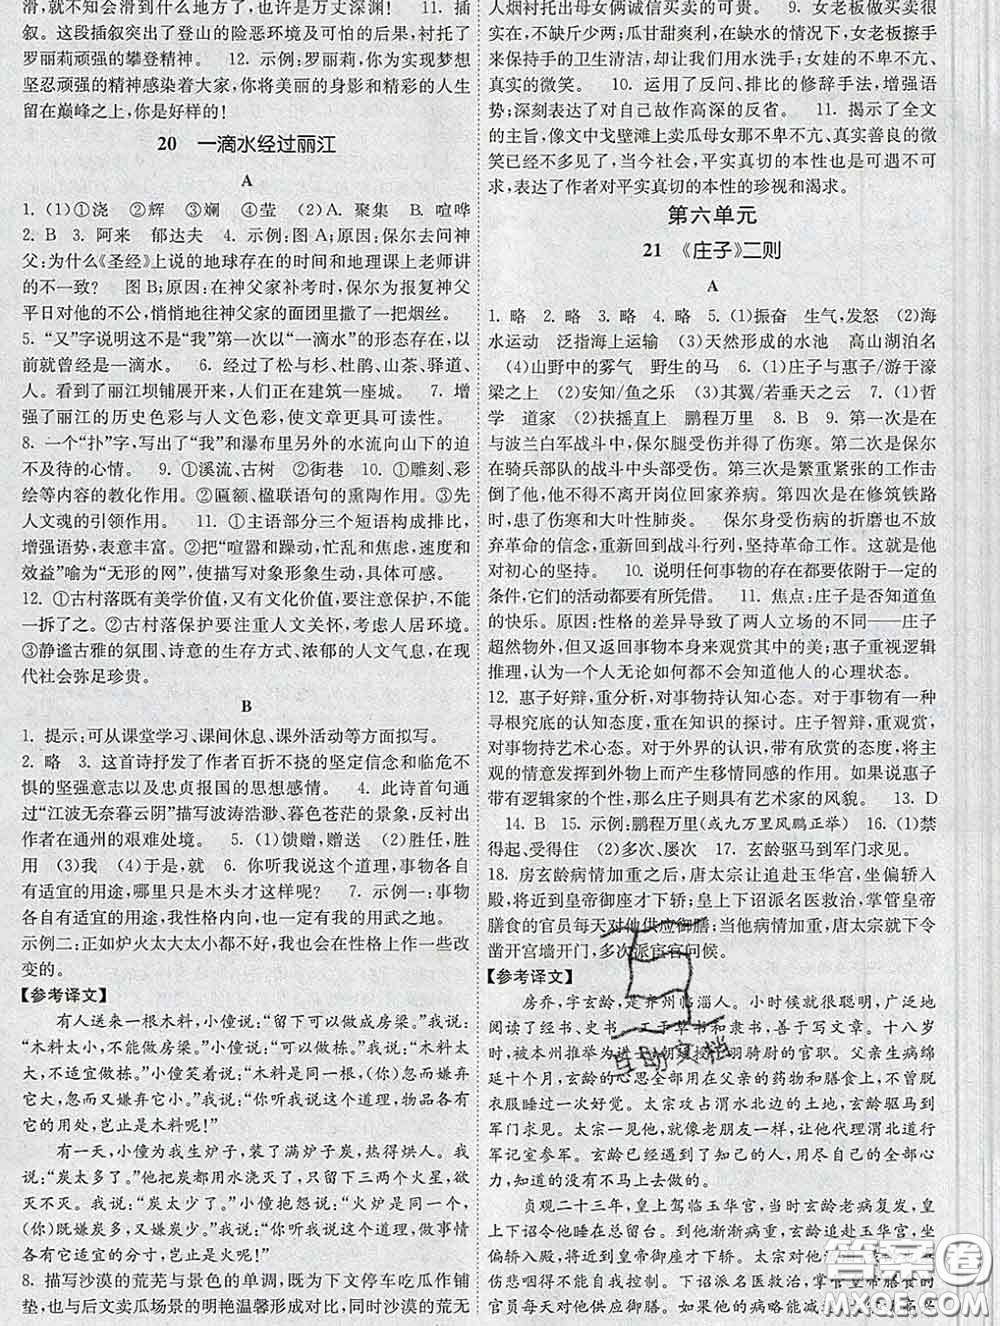 滑,就不知会滑到什么地方了,也许是万丈深渊! 11. 插
叙。这段插叙突出了登山的险恶环境及可怕的后果,衬托了
罗丽莉顽强的攀登精神。 12. 示例:罗丽莉,你为实现梦想
坚忍顽强的精神感染着大家,你将美丽的身影和精彩的人生
留在巅峰之上,你是好样的!
20 一滴水经过丽江
A
1. (1)①浇 ②辉 ③斓 ④莹 (2)A. 聚集 B. 喧哗
2. B 3. 阿来 郁达夫 4. 示例:图 A;原因:保尔去问神
父:为什么《圣经》上说的地球存在的时间和地理课上老师讲
的不一致? 图 B;原因:在神父家补考时,保尔为报复神父
平日对他的不公,悄悄地往神父家的面团里撒了一把烟丝。
5. “又”字说明这不是“我”第一次以“一滴水”的形态存在,以
前就曾经是一滴水。 6. 经过了松与杉、杜鹃、山茶、驿道、
人。看到了丽江坝铺展开来,人们正在建筑一座城。 7. 增
强了丽江的历史色彩与人文色彩,使文章更具可读性。
8. 一个“扑”字,写出了“我”和瀑布里另外的水流向山下的迫
不及待的心情。 9. ①溪流、古树 ②街巷 10. ①雕刻、彩
绘等内容的教化作用。②匾额、楹联语句的熏陶作用。③先
人文魂的引领作用。 11. ①主语部分三个短语构成排比,
增强语势,表意丰富。②把“喧嚣和躁动,忙乱和焦虑,速度和
效益”喻为“无形的网”,使描写对象形象生动,具体可感。
12. ①古村落既有美学价值,又有文化价值,要注意保护,不能
一拆了之。②古村落保护要注重人文关怀,考虑人居环境。
③静谧古雅的氛围、诗意的生存方式、浓郁的人文气息,在现
代社会弥足珍贵。
B
1. 提示:可从课堂学习、课间休息、课外活动等方面拟写。
2. 略 3. 这首诗抒发了作者百折不挠的坚定信念和临危不
惧的坚强意志以及忠贞报国的思想感情。 4. 此诗首句通
过“江波无奈暮云阴”描写波涛浩渺、暮色苍茫的景象,反衬出
作者在通州的艰难处境。 5. (1)馈赠,赠送 (2)胜任,胜
用 (3)我 (4)于是,就 6. 你听说这个道理,事物各自有
自有适宜的用途,哪里只是木头才这样呢? 7. 示例一:事物
各自有适宜的用途,我性格内向,也一定有我的用武之地。
示例二:正如炉火太大太小都不好,我也会在性格上作一些改
变的。
【参考译文】
有人送来一根木料,小僮说:“留下可以做成房梁。”我说:
“木料太小,不能做房梁。”小僮说:“留下做栋。”我说:“木料太
大,不适宜做栋。”小僮笑着说:“木料是同一个,你忽而嫌弃它
大又嫌弃它小。”我说:“小僮,你听说这个道理,物品各有它
它的用处,岂止是木料呢!”
有一年冬天,小僮为我生炉子,装了满炉子炭,热得烘人。我
说:“炭太多了。”他把炭都用水浇灭了,只留下一两个火星,欲
灭不灭。我说:“炭太少了。”小僮抱怨说:“火炉是同一个,
(你)既嫌炭多,又嫌炭少。”我说:“你听说这个道理,做事情
各有它适宜的分寸,岂止是火呢!”
8. 描写沙漠的荒芜与景色的单调,既为下文停车吃瓜作铺
垫,也与后文卖瓜场景的明艳温馨形成对比,同时沙漠的荒无
人烟衬托出母女俩诚信买卖的可贵。 9. 女老板做买卖实
在,不缺斤少两;瓜甘甜爽利,在缺水的情况下,女老板擦手
手的卫生清洁,却让我们用水洗手;女娃的不卑不亢、真实善
良的微笑。 10. 运用了反问、排比的修辞手法,增强语
势;深刻表达了对自己故作高深的反省。 11. 揭示了全文
的主旨,像文中戈壁滩上卖瓜母女那不卑不亢、真实善良的微
笑已经不多见了,当今社会,平实真切的本性也是可遇不可
求,表达了作者对平实真切的本性的珍视和渴求。
第六单元
21 《庄子》二则
A
1. 略 2. 略 3. 略 4. 略 5. (1)振奋 生气,发怒 (2)海
水运动 泛指海上运输 (3)天然形成的水池 高山湖泊名
(4)山野中的雾气 野生的马 6. (1)庄子与惠子/游于濠
梁之上 (2)安知/鱼之乐 (3)其翼/若垂天之云 7. (1)哲
学 道家 (2)扶摇直上 鹏程万里 8. B 9. 第一次是在
与波兰白军战斗中,保尔腿受伤并得了伤寒。第二次是保尔
在骑兵部队的战斗中头部受伤。第三次是繁重紧张的工作击
倒了他,他不得不离开岗位回家养病。第四次是在修筑铁路
时,患了伤寒和大叶性肺炎。 保尔身受伤病的折磨也不放
弃革命的信念,重新回到战斗行列,坚持革命工作。这就是他
对初心的坚持。 10. 说明任何事物的存在都要依附于一定的
条件,它们的活动都要有所凭借。 11. 焦点:庄子是否知道鱼
的快乐。原因:性格的差异导致了两人立场的不同——庄子
超然物外,但又返回事物本身来观赏其中的美;惠子重视逻辑
推理,认为一个人无论如何都不会知道他人的心理状态。
12. 惠子好辩,重分析,对事物持认知心态。对于事物有一种
寻根究底的认知态度,重在知识的探讨。庄子智辩,重观赏,
对事物持艺术心态。对于外界的认识,带有欣赏的态度,将主
观的情意发挥到外物上而产生移情同感的作用。如果说惠子
带有逻辑家的个性,那么庄子则具有艺术家的风貌。 13. D
14. B 15. 示例:鹏程万里(或九万里风鹏正举) 16. (1)禁
得起、受得住 (2)多次、屡次 17. 玄龄驱马到军门求见。
18. 房玄龄病情加重之后,唐太宗让追赴玉华宫,坐偏轿入
殿,将到皇帝御座才下轿;皇上下诏派名医救治,掌管皇帝
膳食的官员每天对他供应御膳;当他病情加重,唐太宗就下令
凿开宫墙开门,多次派宦官问候。
【参考译文】
房乔,字玄龄,是齐州临淄人。小时候就很聪明,广泛地
阅读了经书、史书,工于草书和隶书,善于写文章。十八岁
时,被本州推举为进士,初次授予羽骑尉的官职。父亲生病绵
延十个月,玄龄的心思全用在父亲的药物和膳食上,不曾脱
衣服睡过一次好觉。太宗攻占了渭水北边的土地,玄龄驱马到
军门求见。太宗一见他,就像老朋友一样,让他代理渭北道行
军记室参军。玄龄已遇到了知己的人,就竭尽全力地奉献。
贞观二十三年,皇上驾临玉华宫,当时玄龄老病复发,皇
上下诏令他在总留台。到他渐渐病重,玄龄追赴玉华宫,坐
偏轿入殿,将到皇帝御座才下轿。太宗对着他
伤悲不能自我控制。下诏派名医救治,掌管皇帝膳食的
官员每天对他供应御膳。如果他的病略能减
互助文档
答案圈
MXQE.COM